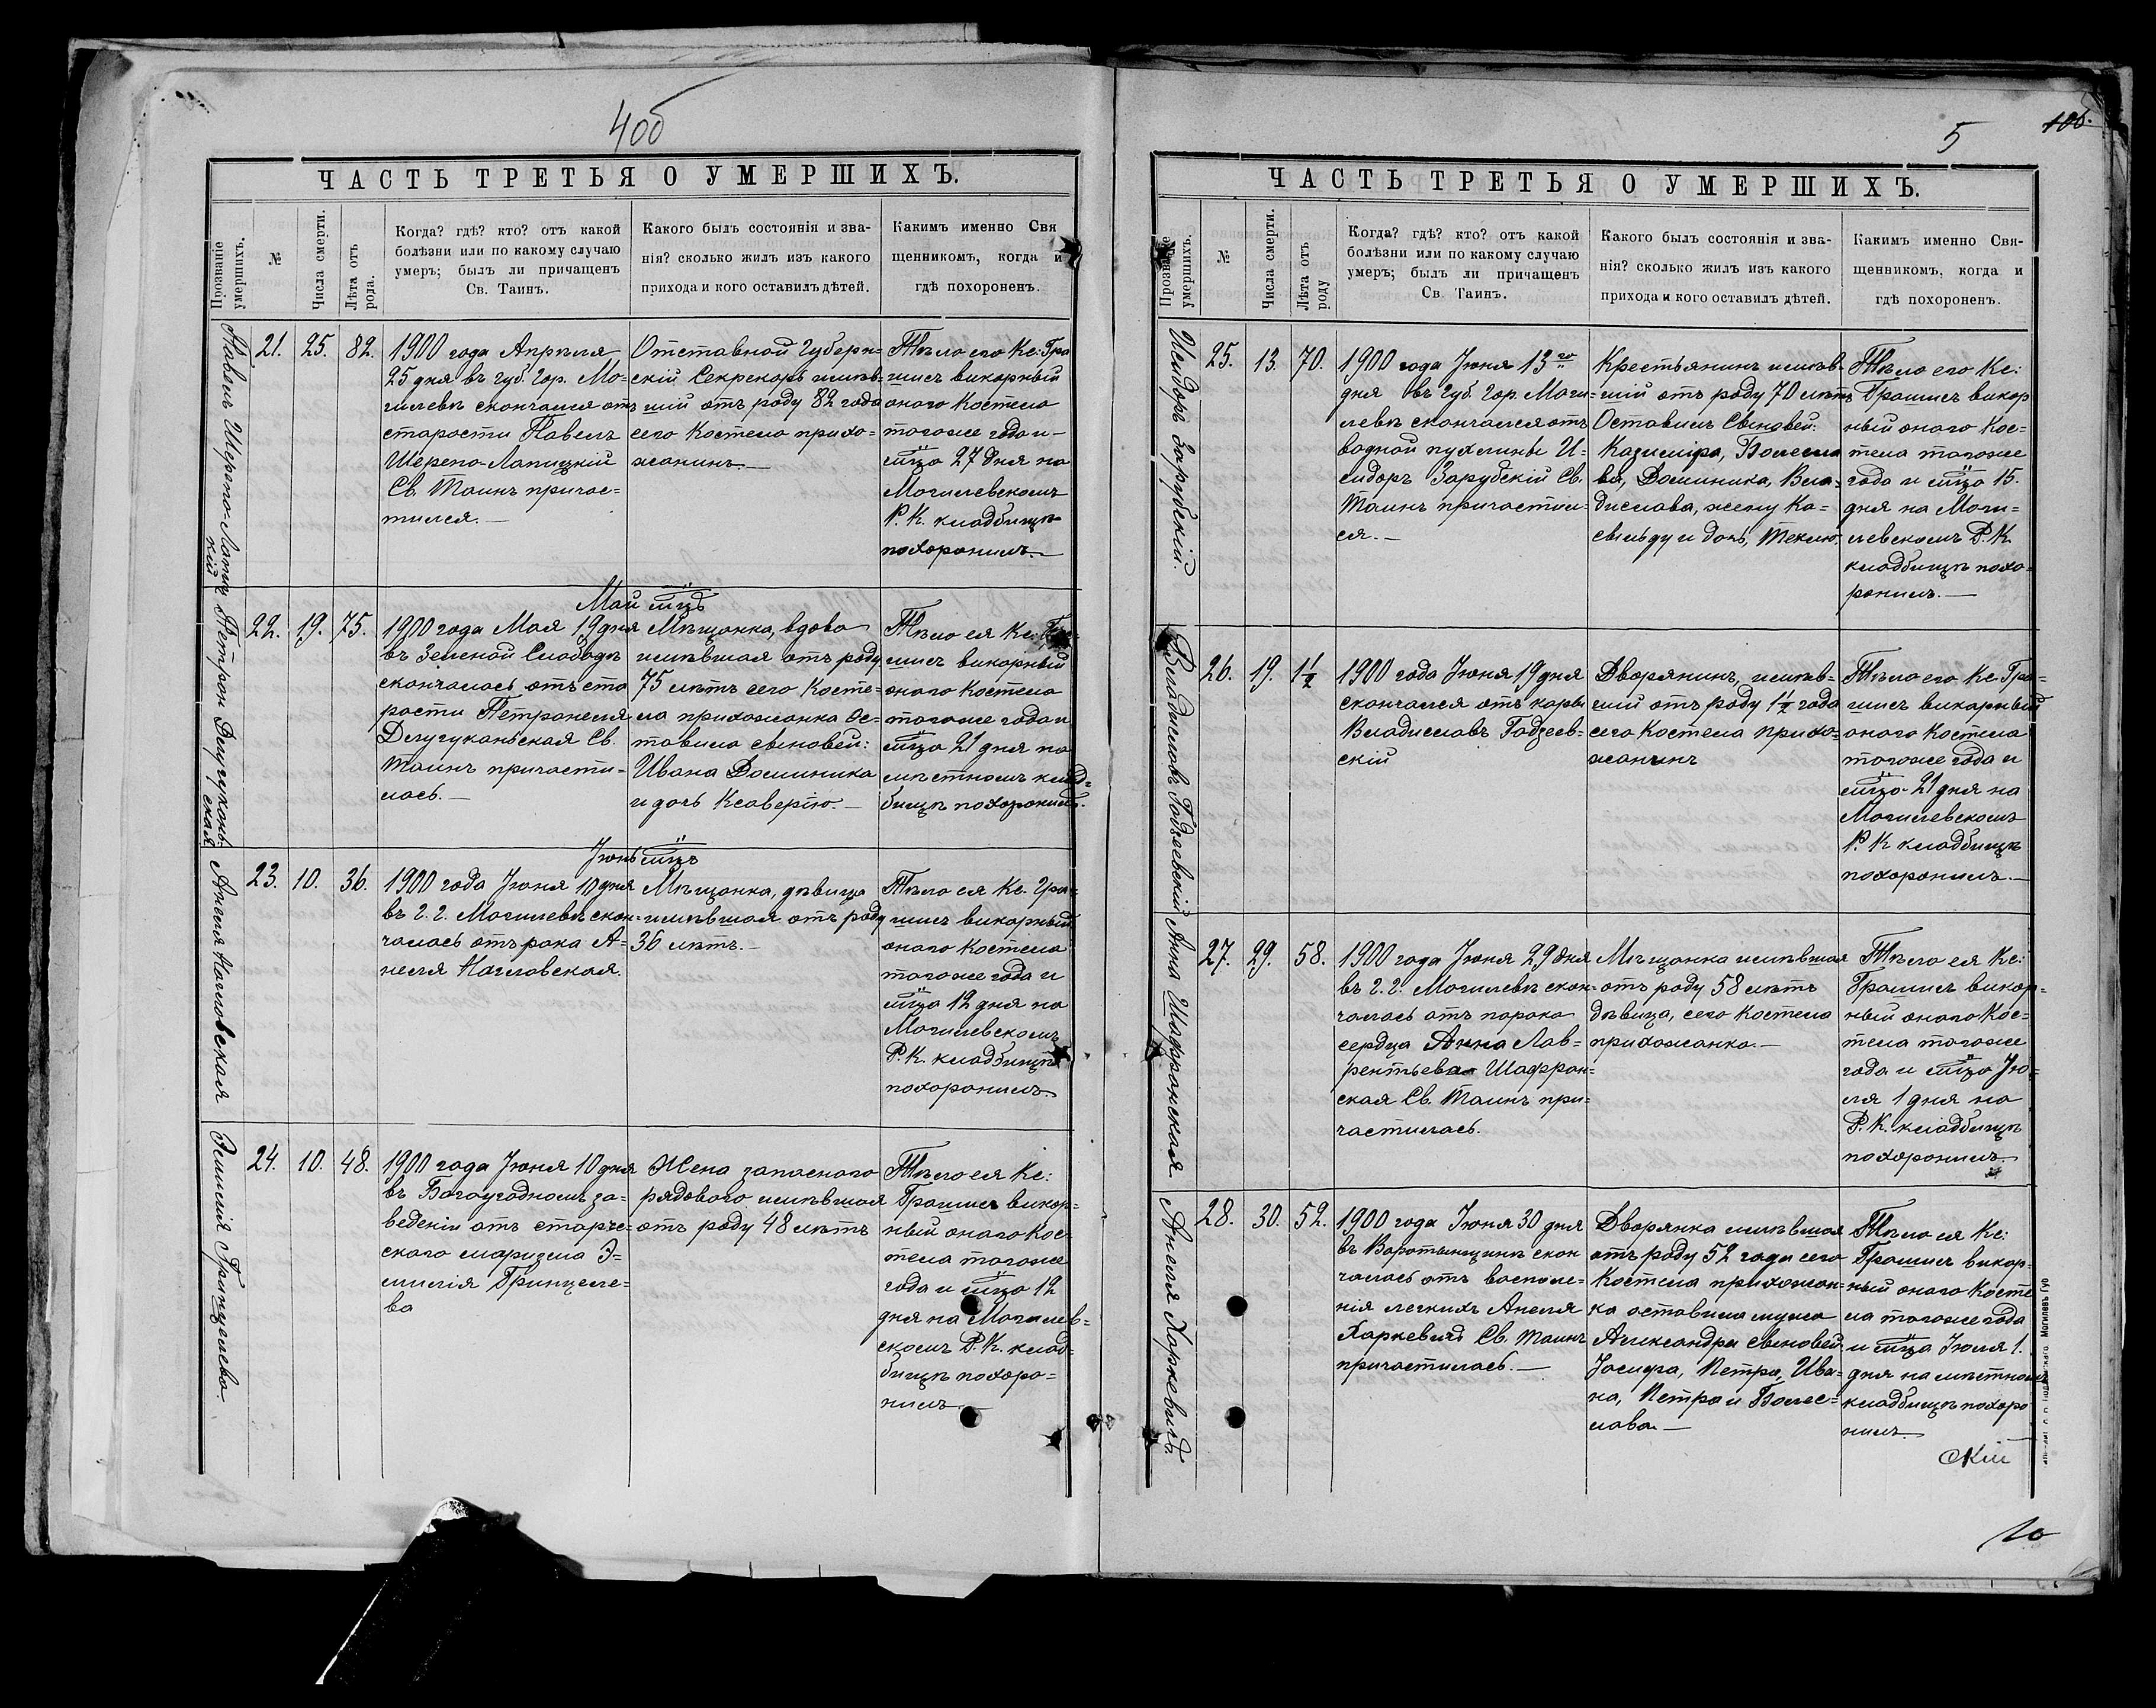 4об
ЧАСТЬ ТРЕТЬЯ О УМЕРШИХЪ.
Прозваніе умершихъ.
№
Числа смерти.
Лѣта отъ рода.
Когда? гдѣ? кто? отъ какой
болѣзни или по какому случаю
умеръ; былъ ли причащенъ
Св. Таинъ.
Какого былъ состоянія и зва-
нія? сколько жилъ изъ какого
прихода и кого оставилъ дѣтей.
Какимъ именно Свя
щенникомъ, когда и
гдѣ похороненъ.
Павелъ Шерепо-Лапиц
кій
21.
25.
82.
1900 года Апрѣля
25 дня въ губ. гор. Мо-
гилевѣ скончался отъ
старости Павелъ
Шерепо-Лапицкій
Св. Таинъ причас=
тился.—
Отставной Губерн=
скій Секрекарь имѣв-
шій отъ роду 82 года
сего Костела прихо=
жанинъ.—
Тѣло его Кс: Гра
лисъ викарный
онаго Костела
тогоже года и—
мѣца 27 дня на
Могилевскомъ
Р. К. кладбищѣ
похоронилъ.—
Май мѣцъ
Петронеля Длугукань-
ская
22.
19.
75.
1900 года Мая 19 дня
въ Зеленой Слободѣ
скончалась отъ ста
рости Петронеля
Длугуканьская Св.
Таинъ причасти=
лась.—
Мѣщанка, вдова
имѣвшая отъ роду
75 лѣтъ сего Косте=
ла прихожанка Ос=
тавила сыновей:
Ивана Доминика
и дочь Ксаверію.—
Тѣло ея Кс:
лисъ викарный
онаго Костела
тогоже года и
мѣца 21 дня на
мѣстномъ клад=
бищѣ похоронилъ.
Іюнь мѣцъ
23.
10.
36.
1900 года Іюня 10 дня
въ г. г. Могилевѣ скон=
чалась отъ рака А=
неля
Мѣщанка, дѣвица
имѣвшая отъ роду
36 лѣтъ.—
Тѣло ея Кс. Гра=
лисъ викарный
онаго Костела
тогоже года и
мѣца 12 дня на
Могилевскомъ
Р. К. кладбищѣ
похоронилъ.
Эмилія Гринцелева.
24.
10.
48.
1900 года Іюня 10 дня
въ Богоугодномъ за=
ведении отъ старче=
скаго маразма Э=
милія Гринцеле=
ва
Жена запаснаго
рядоваго имѣвшая
отъ роду 48 лѣтъ
Тѣло ея Кс:
Гралисъ викар=
ный онаго Кос
тела тогоже
года и мѣца 12
дня на Могилев=
скомъ Р. К. клад=
бищѣ похоро=
нилъ
5
10б.
ЧАСТЬ ТРЕТЬЯ О УМЕРШИХЪ.
умершихъ.
№
Числа смерти.
Лѣта отъ роду
Когда? гдѣ? кто? отъ какой
болѣзни или по какому случаю
умеръ; былъ ли причащенъ
Св. Таинъ.
Какого былъ состоянія и зва-
нія? сколько жилъ изъ какого
прихода и кого оставилъ дѣтей.
Какимъ именно Свя-
щенникомъ, когда и
гдѣ похороненъ.
Исидоръ Зарубскій.
25.
13.
70.
1900 года Іюня 13го
дня въ Губ. Гор. Моги-
левѣ скончался отъ
водной пухлины И-
сидоръ Зарубскій Св.
Таинъ причастил-
ся.—
Крестьянинъ имѣв-
шій отъ роду 70 лѣтъ
Оставилъ Сыновей:
Казиміра, Болесла
ва, Доминика, Вла-
дислава, жену Ка=
сильду и дочь, Теклю.
Тѣло его Кс:
Гралисъ викар
ный онаго Кос=
тела тогоже
года и мѣца 15.
дня на Моги=
левскомъ Р. К.
кладбищѣ похо=
ронилъ.—
Владиславъ Гадзеевскій
26.
19.
1½
1900 года Іюня 19 дня
скончался отъ кори
Владиславъ Гадзеев=
скій
Дворянинъ, имѣв=
шій отъ роду 1½ года
сего Костела прихо=
жанинъ
Тѣло его Кс. Гра=
лисъ викарный
онаго Костела
тогоже года и
мѣца 21 дня на
Могилевскомъ
Р. К кладбищѣ
похоронилъ.—
Анна Шафранская
27.
29.
58.
1900 года Іюня 29 дня
въ г. г. Могилевѣ скон=
чалась отъ порока
сердца Анна Лав=
рентьева Шафран=
ская Св. Таинъ при=
частилась.
Мѣщанка имѣвшая
отъ роду 58 лѣтъ
дѣвица, сего Костела
прихожанка.—
Тѣло ея Кс:
Гралисъ викар=
ный онаго Кос=
тела тогоже
года и мѣца Ію=
ля 1 дня на
Р. К. кладбищѣ
похоронилъ
Анеля Харкевичъ
28.
30.
52.
1900 года Іюня 30 дня
въ Воротынщинѣ скон
чалась отъ воспале=
нія легкихъ Анеля
Харкевичъ Св. Таинъ
причастилась.—
Дворянка имѣвшая
отъ роду 52 года сего
Костела прихожан=
ка оставила мужа
Александра сыновей
Іосифа, Петра, Ива=
на, Петра и Болес=
лава—
Тѣло ея Кс:
Гралисъ викар=
ный онаго Косте
ла тогоже года
и мѣца Іюля 1.
дня на мѣстномъ
кладбищѣ похоро
нилъ.
10